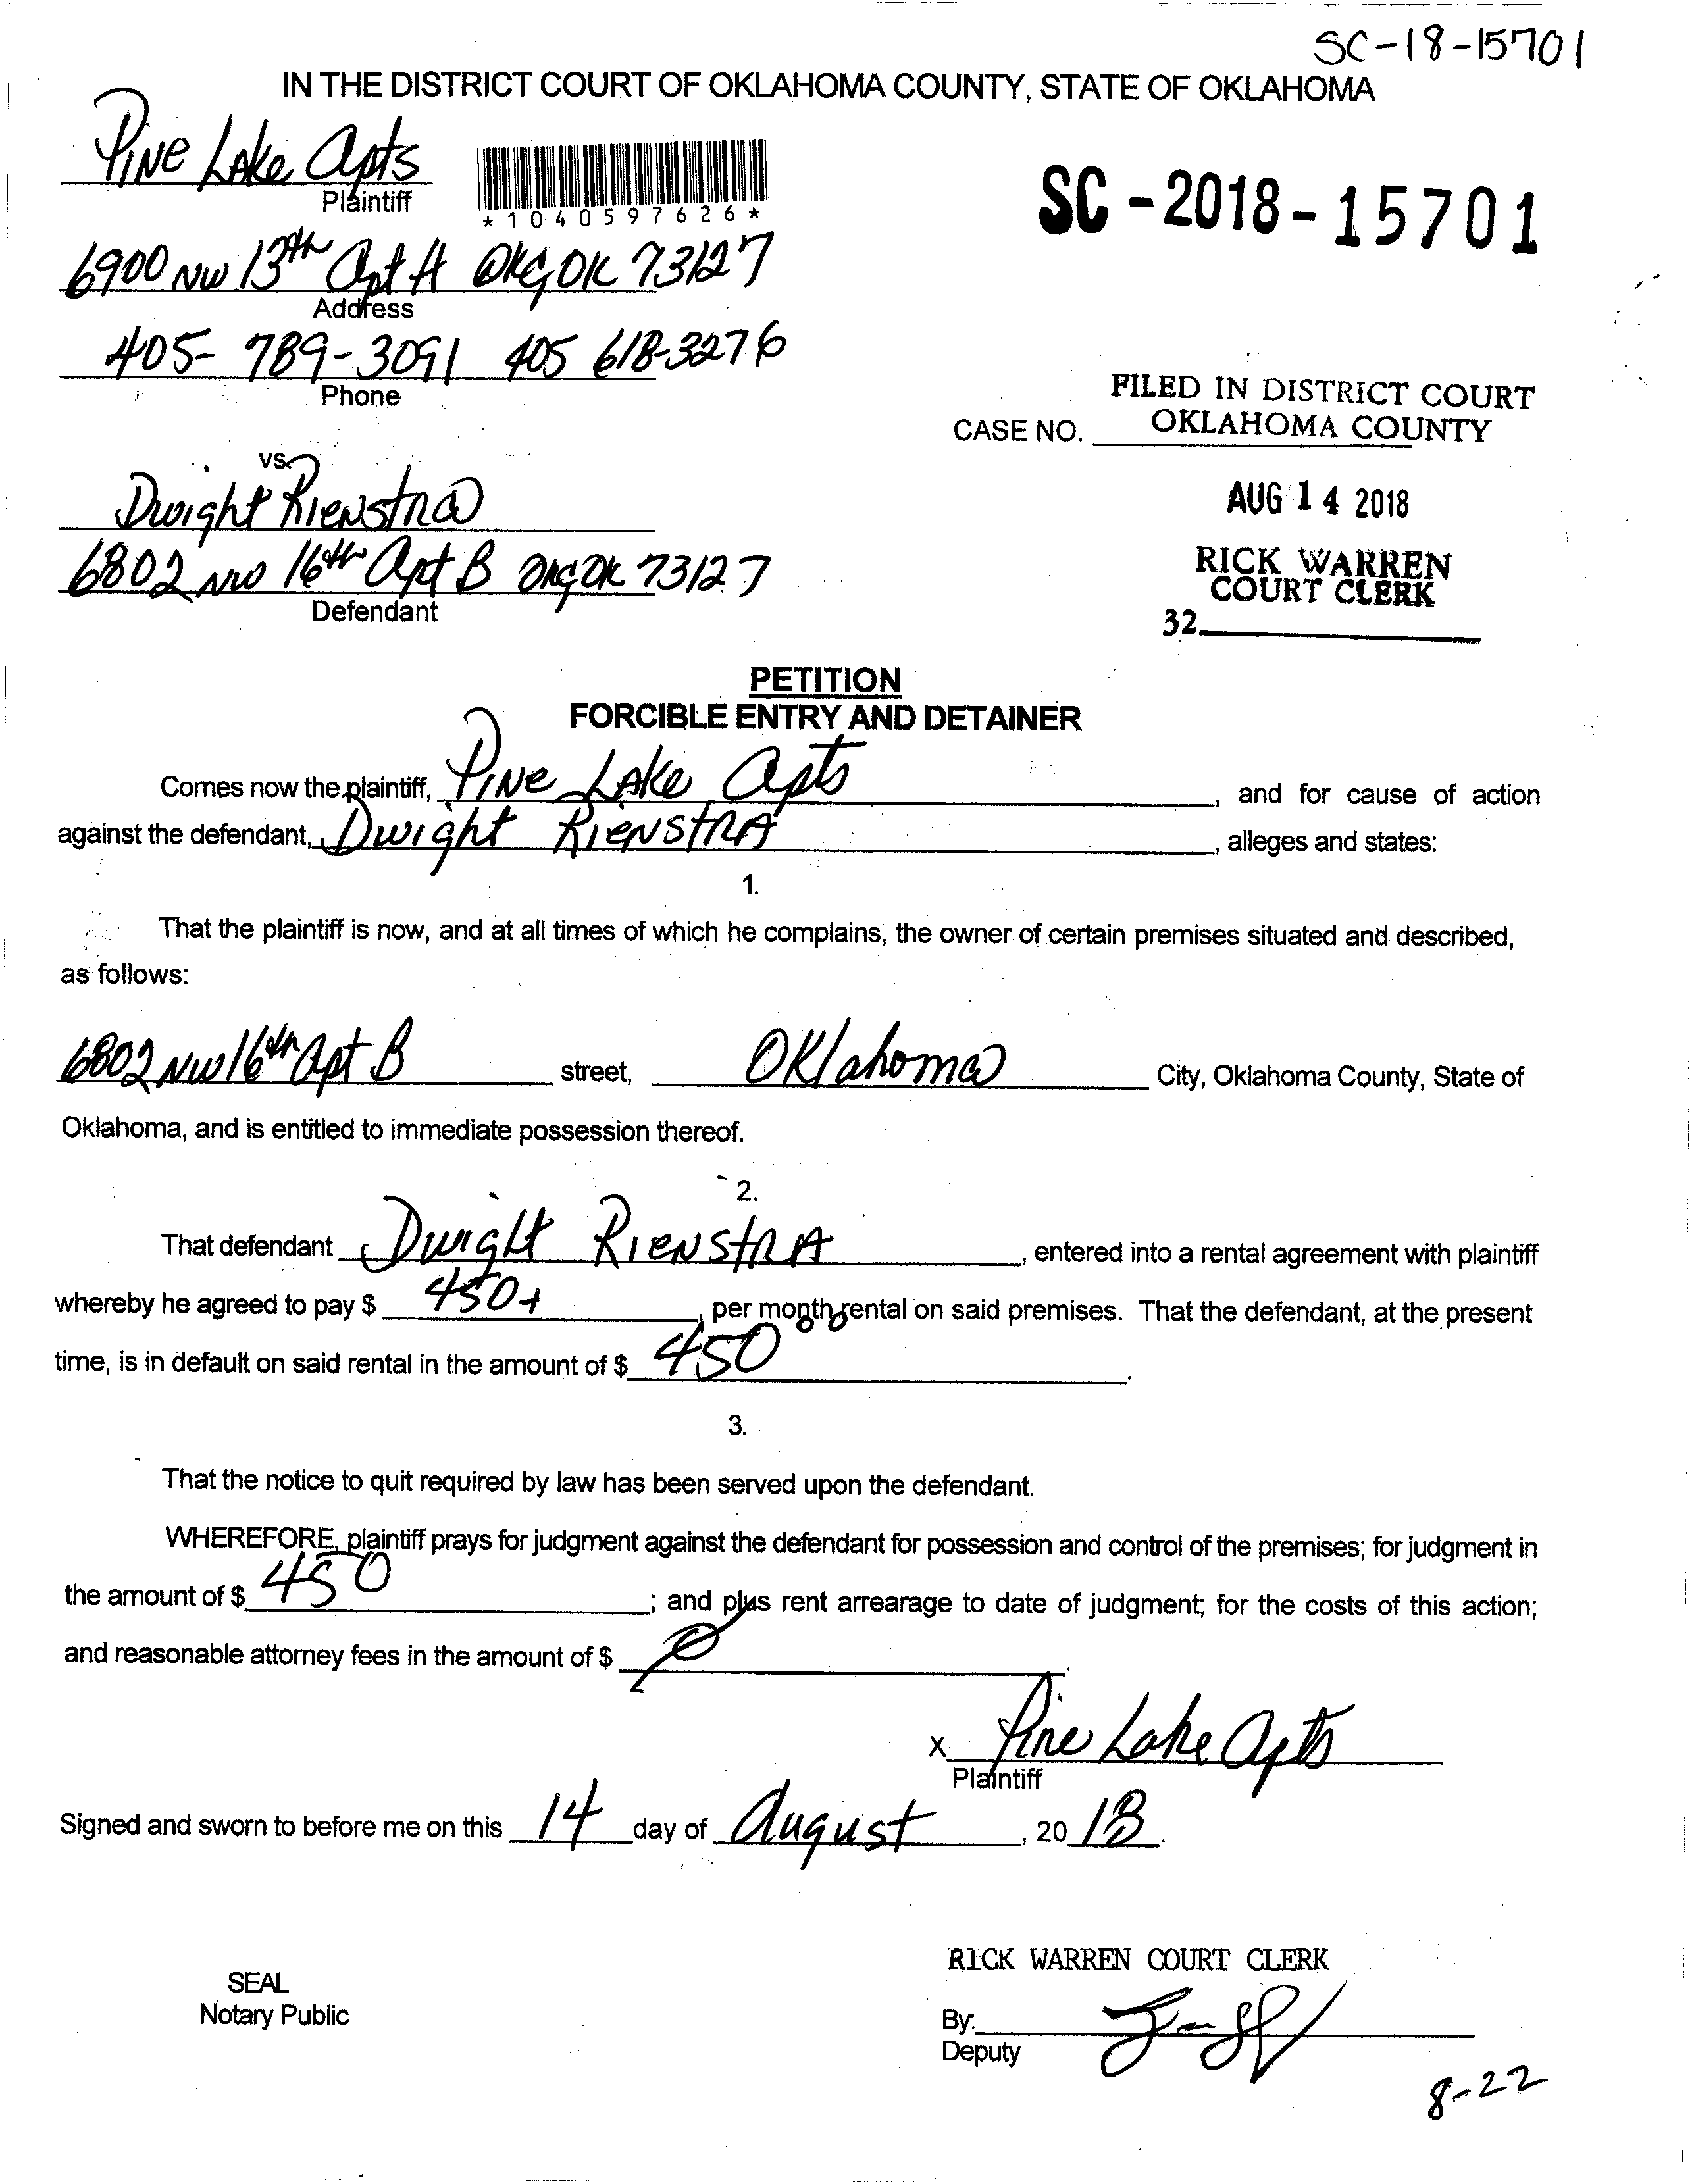 SC-18-15701
IN THE DISTRICT COURT OF OKLAHOMA COUNTY, STATE OF OKLAHOMA
PINE LAKe Apts
Plaintiff
*1040597626*
SC-2018-15701
6900 NW 13th Apt A OKC, OK 73127
Address
405-789-3091 405 618-3276
Phone
FILED IN DISTRICT COURT
CASE NO. OKLAHOMA COUNTY
vs.
Dwight Rienstra
AUG 14 2018
6802 NW 16th Apt B OKC OK 73127
Defendant
RICK WARREN
COURT CLERK
32
PETITION
FORCIBLE ENTRY AND DETAINER
Comes now the plaintiff, PINe LAKe Apts, and for cause of action
against the defendant, Dwight RIENSTRA, alleges and states:
1.
That the plaintiff is now, and at all times of which he complains, the owner of certain premises situated and described,
as follows:
6802 NW 16th Apt B street, Oklahoma City, Oklahoma County, State of
Oklahoma, and is entitled to immediate possession thereof.
2.
That defendant Dwight RIENSTRA, entered into a rental agreement with plaintiff
whereby he agreed to pay $ 450+, per month rental on said premises. That the defendant, at the present
time, is in default on said rental in the amount of $ 450.
3.
That the notice to quit required by law has been served upon the defendant.
WHEREFORE, plaintiff prays for judgment against the defendant for possession and control of the premises; for judgment in
the amount of $ 450; and plus rent arrearage to date of judgment; for the costs of this action;
and reasonable attorney fees in the amount of $
x Pine Lake Apts
Plaintiff
Signed and sworn to before me on this 14 day of August, 20 18.
RICK WARREN COURT CLERK
SEAL
Notary Public
By:
Deputy
8-22